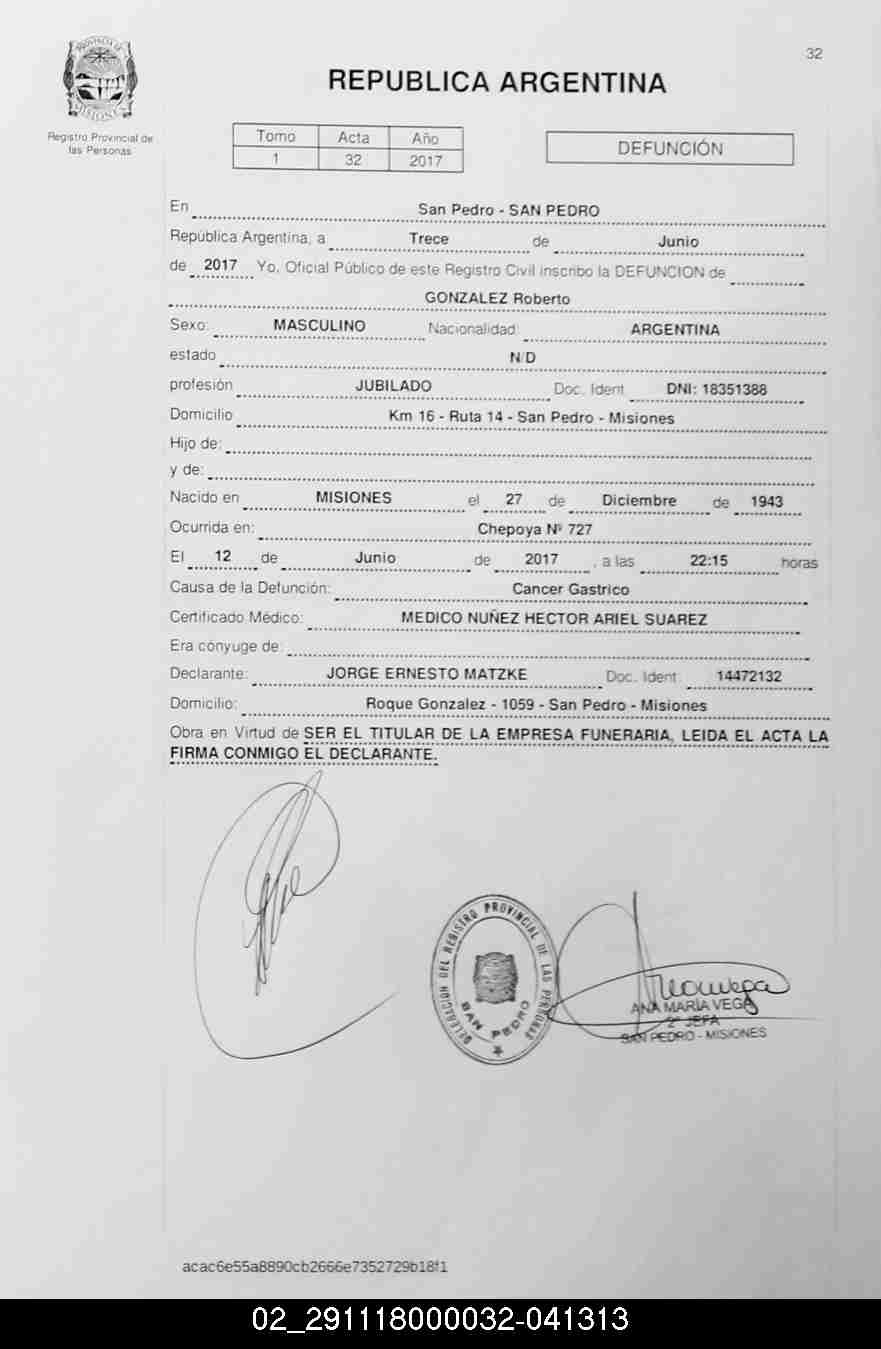 32
REPUBLICA ARGENTINA
PROVINCIA DE
MISIONES
Registro Provincial de
las Personas
Tomo Acta Año
1 32 2017
DEFUNCIÓN
En San Pedro - SAN PEDRO
República Argentina, a Trece de Junio
de 2017 Yo, Oficial Público de este Registro Civil inscribo la DEFUNCION de
GONZALEZ Roberto
Sexo: MASCULINO Nacionalidad: ARGENTINA
estado N/D
profesión JUBILADO Doc. Ident DNI: 18351388
Domicilio Km 16 - Ruta 14 - San Pedro - Misiones
Hijo de:
y de:
Nacido en MISIONES el 27 de Diciembre de 1943
Ocurrida en: Chepoya Nº 727
El 12 de Junio de 2017 , a las 22:15 horas
Causa de la Defunción: Cancer Gastrico
Certificado Médico: MEDICO NUÑEZ HECTOR ARIEL SUAREZ
Era cónyuge de:
Declarante: JORGE ERNESTO MATZKE Doc. Ident: 14472132
Domicilio: Roque Gonzalez - 1059 - San Pedro - Misiones
Obra en Virtud de SER EL TITULAR DE LA EMPRESA FUNERARIA, LEIDA EL ACTA LA
FIRMA CONMIGO EL DECLARANTE.
DELEGACION DEL REGISTRO PROVINCIAL DE LAS PERSONAS
SAN PEDRO
ANA MARÍA VEGA
2º JEFA
SAN PEDRO - MISIONES
acac6e55a8890cb2666e7352729b18f1
02_291118000032-041313